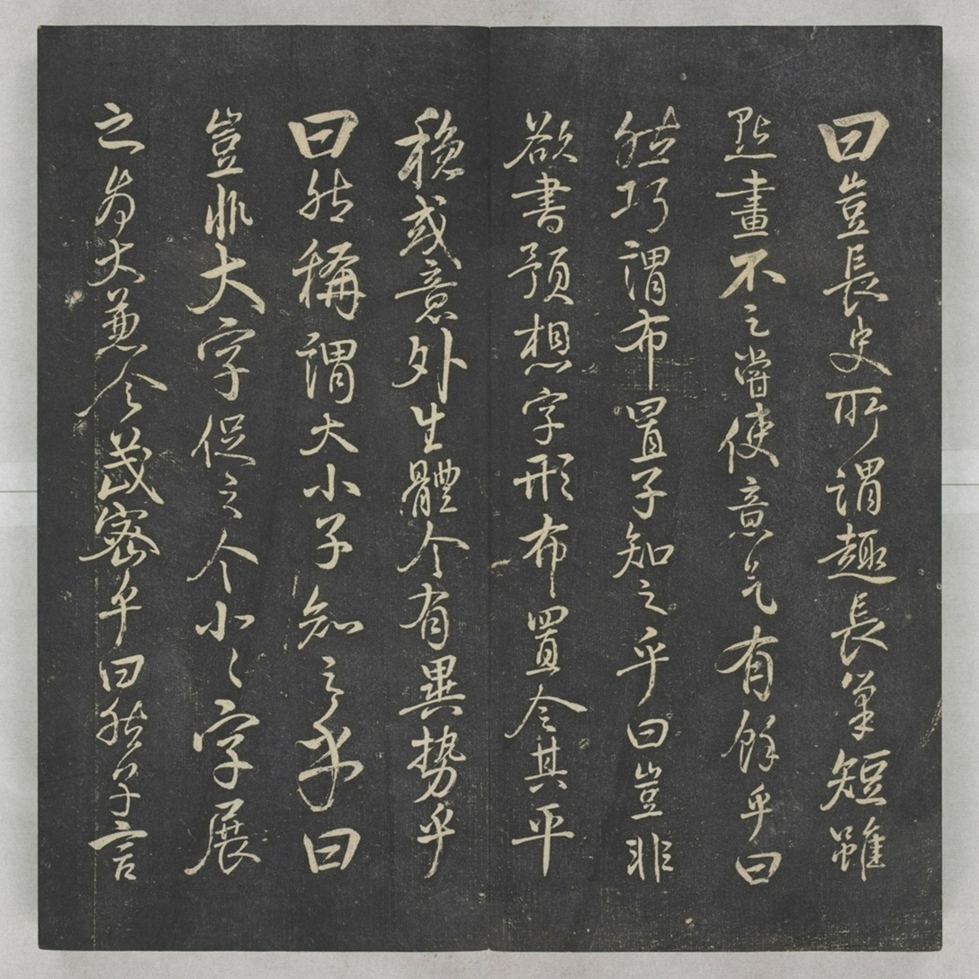 曰豈長史所謂趣長筆短雖
點畫不足嘗使意气有餘乎曰
然巧謂布置子知之乎曰豈非
欲書預想字形布置令其平
穩或意外生體令有異勢乎
曰然稱謂大小子知之乎曰
豈非大字促之令小〻字展
之為大兼令茂密乎曰然子言